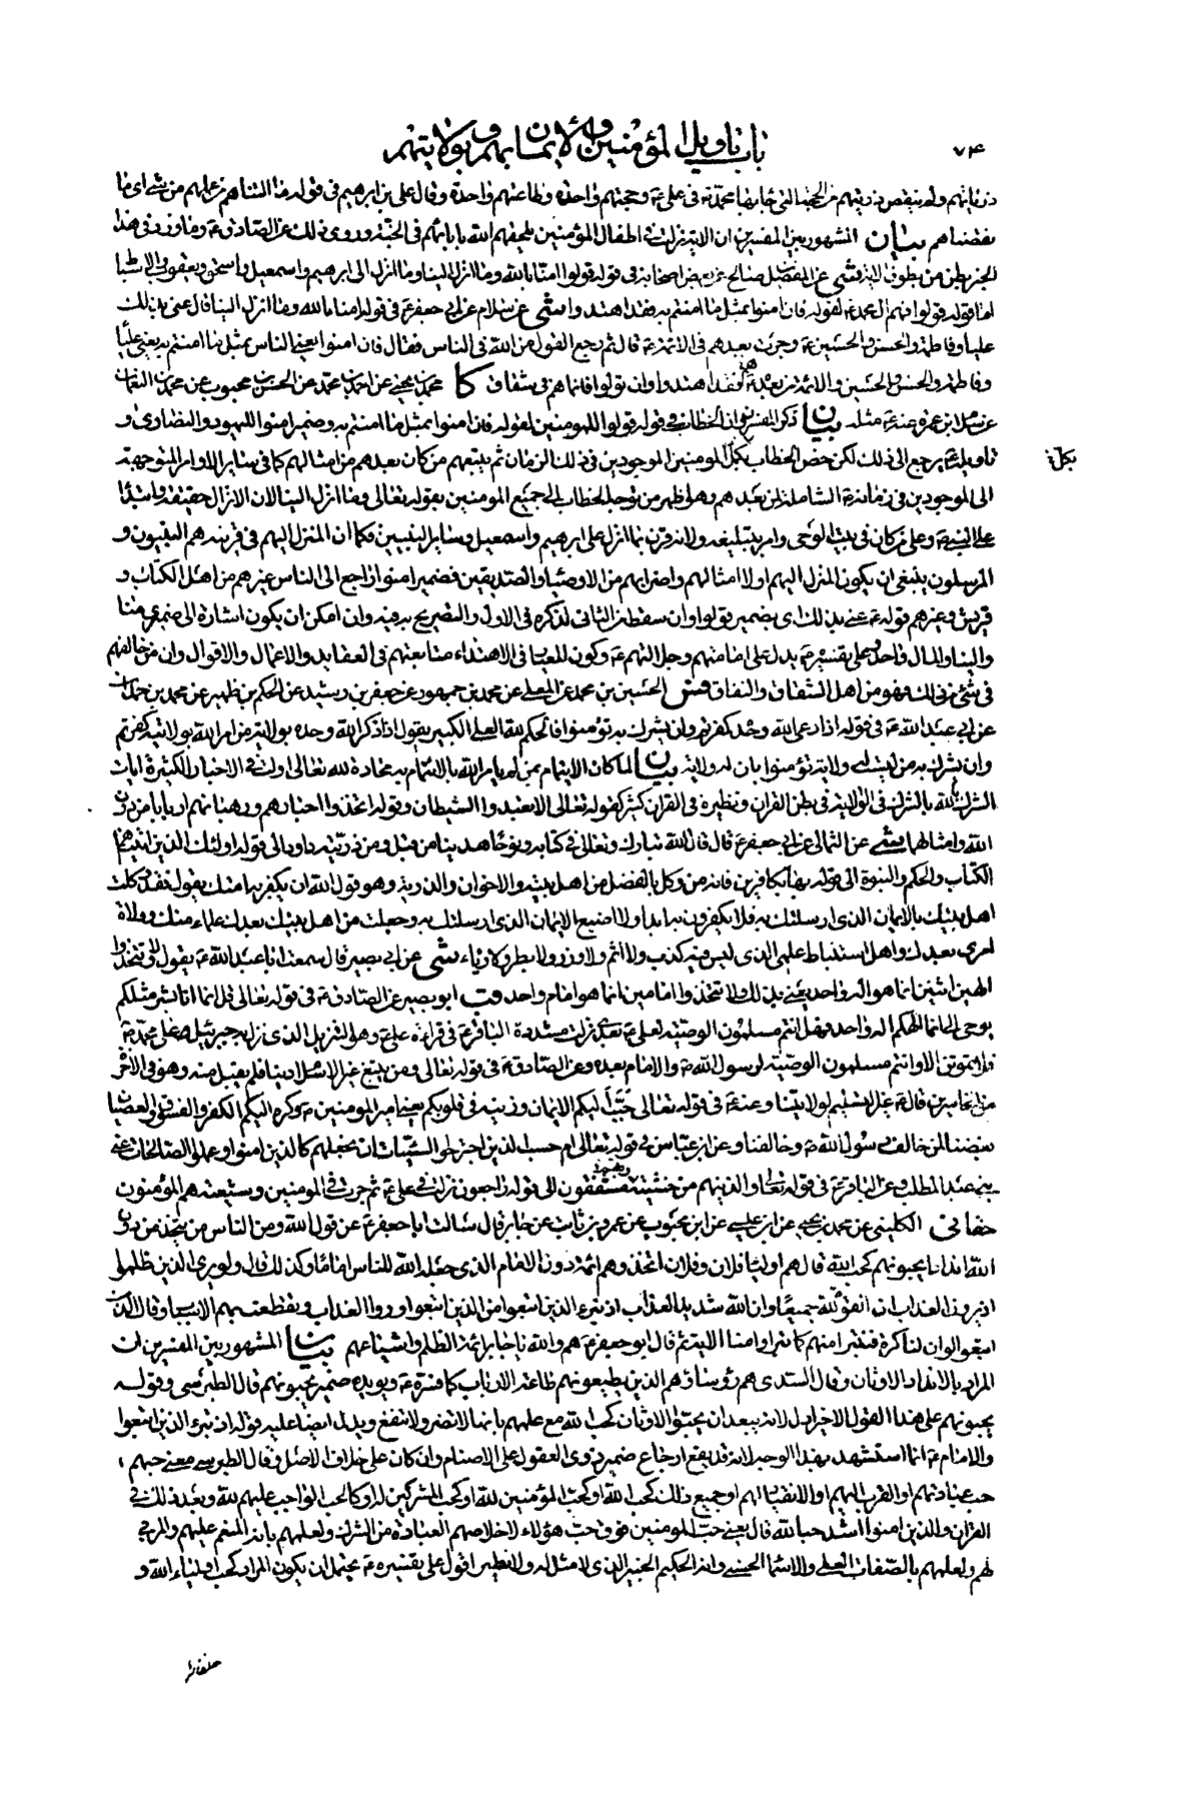 ٧۴
باب تاويل المؤمنين والايمان بهم وبولايتهم
ذريّاتهم ولم ينقص ذريتهم من الحجة التي جاء بها محمد ص في علي ع وحجتهم واحدة وطاعتهم واحدة وقال علي بن ابرهيم في قوله وما التناهم من عملهم من شئ اي ما
نقصناهم بيان المشهور بين المفسرين ان الاية نزلت في اطفال المؤمنين يلحقهم الله بابائهم في الجنة وروي ذلك عن الصادق ع وما ورد في هذا
الخبر بطن من بطون الاية شى عن المفضل بن صالح عن بعض اصحابه في قوله قولوا امنا بالله وما انزل الينا وما انزل الى ابرهيم واسمعيل واسحق ويعقوب والاسباط
اما قوله قولوا فهم ال محمد ع لقوله فان امنوا بمثل ما امنتم به فقد اهتدوا شى عن سلام عن ابي جعفر ع في قوله امنا بالله وما انزل الينا قال عنى بذلك
عليا وفاطمة والحسن والحسين ع وجرت بعدهم في الائمة ع قال ثم رجع القول من الله في الناس فقال فان امنوا يعني الناس بمثل ما امنتم به يعني عليّا
وفاطمة والحسن والحسين والائمة من بعدهم ع فقد اهتدوا وان تولوا فانما هم في شقاق كا محمد بن يحيى عن احمد بن محمد عن الحسن بن محبوب عن محمد بن النعمان
عن سلام بن عمرة عنه ع مثله بيان ذكر المفسرون ان الخطاب في قوله قولوا للمومنين لقوله فان امنوا بمثل ما امنتم به وضمير امنوا لليهود والنصارى و
تاويله ع يرجع الى ذلك لكن خص الخطاب بكمل المومنين الموجودين في ذلك الزمان ثم يتبعهم من كان بعدهم من امثالهم كما في سائر الاوامر المتوجهة
بكمل
الى الموجودين في زمانه ص الشاملة لمن بعدهم وهو اظهر من توجه الخطاب الى جميع المومنين بقوله تعالى وما انزل الينا لان الانزال حقيقة وابتداء
على النبي ص وعلى من كان في بيت الوحي وامر بتبليغه ولانه قرن بما انزل على ابرهيم واسمعيل وسائر النبيين فكما ان المنزل اليهم في قرينه هم النبيون و
المرسلون ينبغي ان يكون المنزل اليهم اولا امثالهم واضرابهم من الاوصياء والصديقين فضمير امنوا راجع الى الناس غيرهم من اهل الكتاب و
قريش وغيرهم قوله ع عنى بذلك اي بضمير قولوا وان سقط من الثاني لذكره في الاول والتصريح به فيه وان امكن ان يكون اشارة الى ضميري امنا
والينا والمال واحد وعلى تفسيره ع يدل على امامتهم وجلالتهم ع وكون المعيار في الاهتداء متابعتهم في العقايد والاعمال والاقوال وان من خالفهم
في شئ من ذلك فهو من اهل الشقاق والنفاق فس الحسين بن محمد عن المعلى عن محمد بن جمهور عن جعفر بن بشير عن الحكم بن ظهير عن محمد بن حمدان
عن ابي عبد الله ع في قوله اذا دعي الله وحده كفرتم وان يشرك به تؤمنوا فالحكم لله العلي الكبير يقول اذا ذكر الله وحده بولاية من امر الله بولايته كفرتم
وان يشرك به من ليست له ولاية تؤمنوا بان له ولاية بيان لما كان الايتمام بمن لم يامر الله بالايتمام به محادة لله تعالى اولت في الاخبار الكثيرة ايات
الشرك بالله بالشرك في الولاية في بطن القران ونظيره في القران كثير كقوله تعالى الا تعبدوا الشيطان وقوله اتخذوا احبارهم ورهبانهم اربابا من دون
الله وامثالهما شى عن الثمالي عن ابي جعفر ع قال قال الله تبارك وتعالى في كتابه ونوحا هدينا من قبل ومن ذريته داود الى قوله اولئك الذين اتيناهم
الكتاب والحكم والنبوة الى قوله بها بكافرين فانه من وكل بالفضل من اهل بيته والاخوان والذرية وهو قول الله ان يكفر به امتك يقول فقد وكلت
اهل بيتك بالايمان الذي ارسلتك به فلا يكفرون به ابدا ولا اضيع الايمان الذي ارسلتك به وجعلت من اهل بيتك بعدك علماء منك وولاة
امري بعدك واهل استنباط علمي الذي ليس فيه كذب ولا اثم ولا وزر ولا بطر ولا رياء شى عن ابي بصير قال سمعت ابا عبد الله ع يقول لا تتخذوا
الهين اثنين انما هو اله واحد يعني بذلك ولا تتخذوا امامين انما هو امام واحد قب ابو بصير عن الصادق ع في قوله تعالى قل انما انا بشر مثلكم
يوحى الي انما الهكم اله واحد فهل انتم مسلمون الوصية لعلي ع بعدي نزلت مشددة الباقر ع في قراءة علي ع وهو التنزيل الذي نزل به جبرئيل على محمد ص
فلا تموتن الا وانتم مسلمون الوصية لرسول الله ص والامام بعده وعن الصادق ع في قوله تعالى ومن يبتغ غير الاسلام دينا فلم يقبل منه وهو في الاخرة
من الخاسرين قال ع غير التسليم لولايتنا وعنه ع في قوله تعالى حبّب اليكم الايمان وزينه في قلوبكم يعني امير المومنين ع وكره اليكم الكفر والفسوق والعصيان
بغضنا لمن خالف رسول الله ص وخالفنا وعن ابن عباس في قوله تعالى ام حسب الذين اجترحوا السيئات ان نجعلهم كالذين امنوا وعملوا الصالحات يعني
بني عبد المطلب وعن الباقر ع في قوله تعالى والذين هم من خشية ربهم مشفقون الى قوله راجعون نزلت في علي ع ثم جرت في المومنين وشيعته هم المؤمنون
حقا نى الكليني عن محمد بن يحيى عن ابن عيسى عن ابن محبوب عن عمرو بن ثابت عن جابر قال سالت ابا جعفر ع عن قول الله ومن الناس من يتخذ من دون
الله اندادا يحبونهم كحب الله قال هم اوليا فلان وفلان اتخذوهم ائمة دون الامام الذي جعله الله للناس اماما وكذلك قال ولو يرى الذين ظلموا
اذ يرون العذاب ان القوة لله جميعًا وان الله شديد العذاب اذ تبرء الذين اتبعوا من الذين اتبعوا وراوا العذاب وتقطعت بهم الاسباب وقال الذين
اتبعوا لو ان لنا كرة فنتبرا منهم كما تبراوا منا الاية ثم قال ابو جعفر ع هم والله يا جابر ائمة الظلم واشياعهم بيان المشهور بين المفسرين ان
المراد بالانداد الاوثان وقال السدي هم رؤساؤهم الذين يطيعونهم طاعة الارباب كما فسره ع ويويده ضمير يحبونهم قال الطبرسي وقوله
يحبونهم على هذا القول الاخير ادل لانه يبعد ان يحبوا الاوثان كحب الله مع علمهم بانها لا تضر ولا تنفع ويدل ايضا عليه قوله اذ تبرء الذين اتبعوا
والامام ع انما استشهد بهذا الوجه لانه قد يقع ارجاع ضمير ذوى العقول على الاصنام وان كان على خلاف الاصل وقال الطبرسي معنى حبهم
حب عبادتهم او القرب اليهم او الانقياد لهم او جميع ذلك كحب الله او كحب المؤمنين لله او كحب المشركين له او كالحب الواجب عليهم لله وبعد ذلك في
القران والذين امنوا اشد حبا لله قال يعني حب المومنين فوق حب هؤلاء لاخلاصهم العبادة من الشرك ولعلمهم بانه المنعم عليهم والمربي
لهم ولعلمهم بالصفات العلى والاسماء الحسنى وانه الحكيم الخبير الذي لا مثل له ولا نظير اقول على تفسيره ع يحتمل ان يكون المراد كحب اولياء الله و
خلفائه